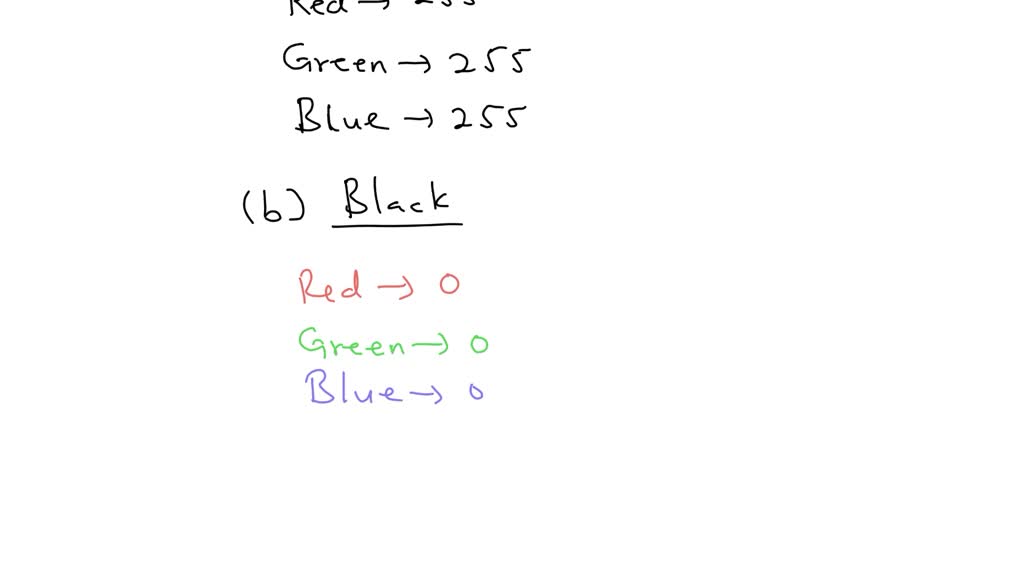 Red → 255
Green → 255
Blue → 255
(b) Black
Red → 0
Green → 0
Blue → 0